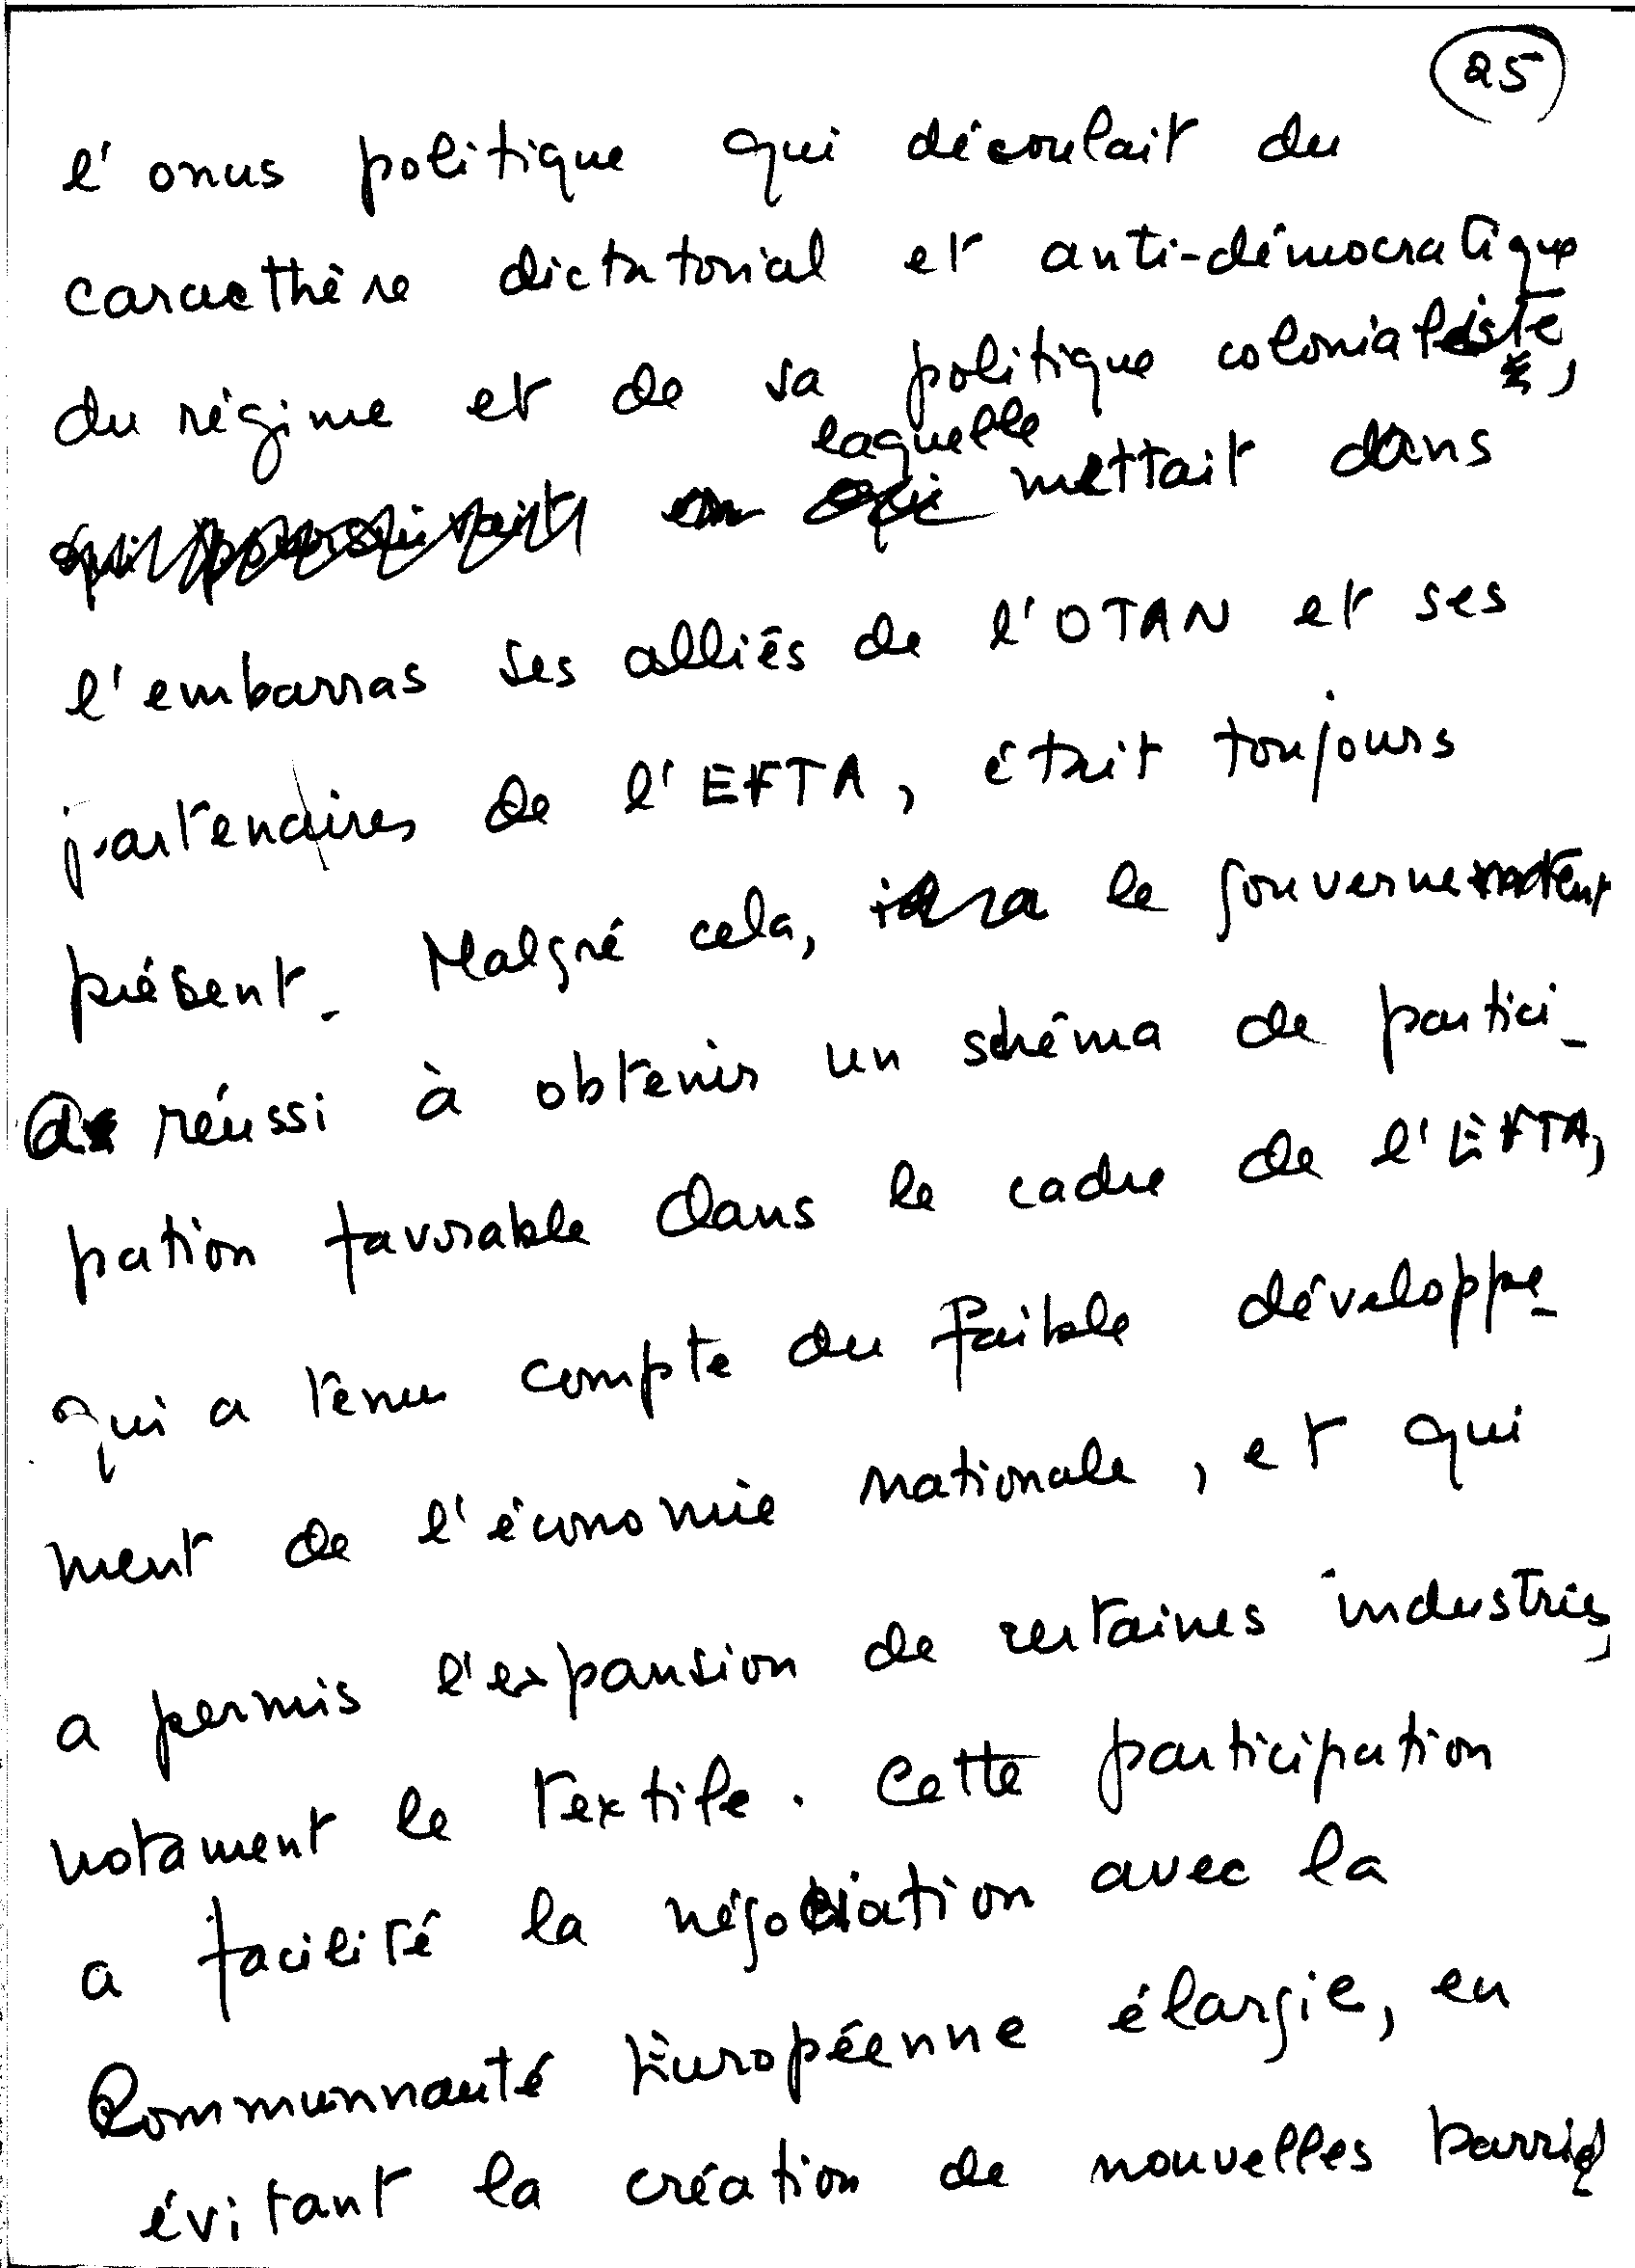 25
l'onus politique qui découlait du
caracthère dictatorial et anti-démocratique
du régime et de sa politique colonialiste,
laquelle
qui poursuivait en qui mettait dans
l'embarras ses alliés de l'OTAN et ses
partenaires de l'EFTA, était toujours
présent. Malgré cela, il a le gouvernement
a réussi à obtenir un schéma de partici-
pation favorable dans le cadre de l'EFTA,
qui a tenu compte du faible développe-
ment de l'économie nationale, et qui
a permis l'expansion de certaines industries,
notament le textile. Cette participation
a facilité la négociation avec la
Communnauté Européenne élargie, en
évitant la création de nouvelles barriè